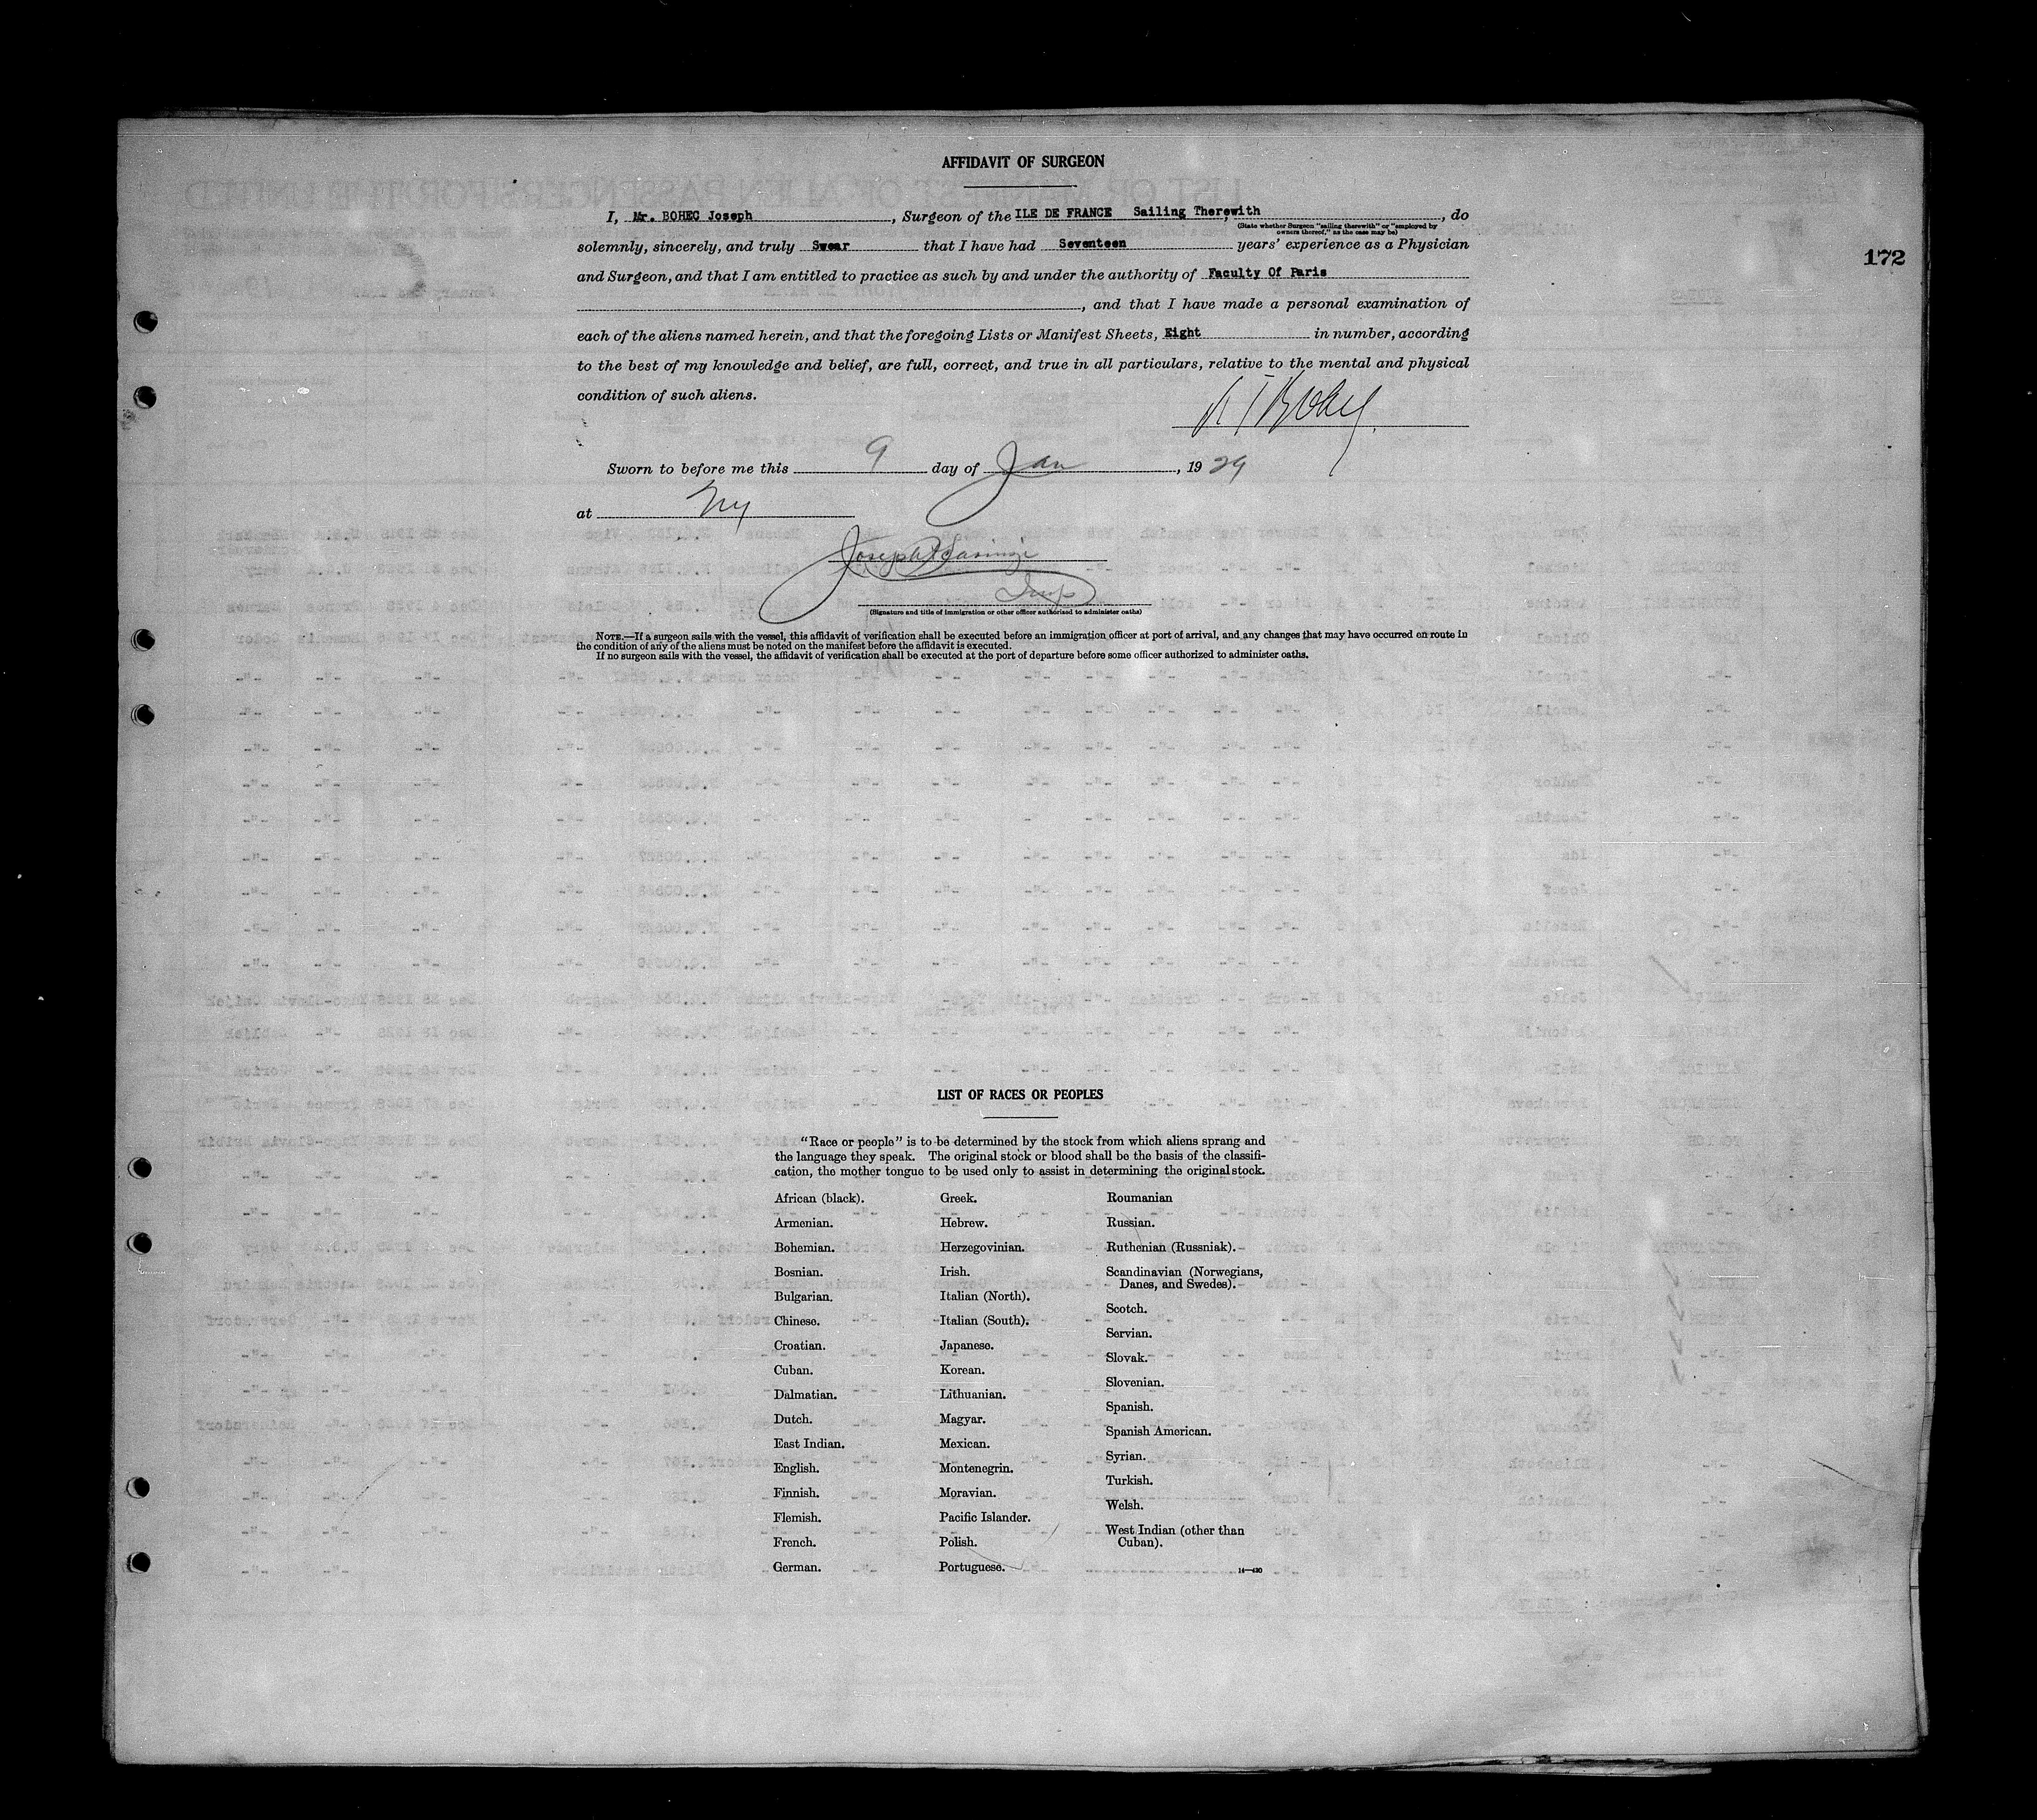 AFFIDAVIT OF SURGEON
I, Mr. BOHEC Joseph, Surgeon of the ILE DE FRANCE Sailing Therewith, do
(State whether Surgeon "sailing therewith" or "employed by
owners thereof," as the case may be)
solemnly, sincerely, and truly Swear that I have had Seventeen years' experience as a Physician
172
and Surgeon, and that I am entitled to practice as such by and under the authority of Faculty Of Paris
, and that I have made a personal examination of
each of the aliens named herein, and that the foregoing Lists or Manifest Sheets, Eight in number, according
to the best of my knowledge and belief, are full, correct, and true in all particulars, relative to the mental and physical
condition of such aliens.
Sworn to before me this 9 day of Jan, 1929
at NY
Joseph
Insp
(Signature and title of immigration or other officer authorized to administer oaths)
NOTE.—If a surgeon sails with the vessel, this affidavit of verification shall be executed before an immigration officer at port of arrival, and any changes that may have occurred en route in
the condition of any of the aliens must be noted on the manifest before the affidavit is executed.
If no surgeon sails with the vessel, the affidavit of verification shall be executed at the port of departure before some officer authorized to administer oaths.
LIST OF RACES OR PEOPLES
"Race or people" is to be determined by the stock from which aliens sprang and
the language they speak. The original stock or blood shall be the basis of the classifi-
cation, the mother tongue to be used only to assist in determining the original stock.
African (black).
Armenian.
Bohemian.
Bosnian.
Bulgarian.
Chinese.
Croatian.
Cuban.
Dalmatian.
Dutch.
East Indian.
English.
Finnish.
Flemish.
French.
German.
Greek.
Hebrew.
Herzegovinian.
Irish.
Italian (North).
Italian (South).
Japanese.
Korean.
Lithuanian.
Magyar.
Mexican.
Montenegrin.
Moravian.
Pacific Islander.
Polish.
Portuguese.
Roumanian
Russian.
Ruthenian (Russniak).
Scandinavian (Norwegians,
Danes, and Swedes).
Scotch.
Servian.
Slovak.
Slovenian.
Spanish.
Spanish American.
Syrian.
Turkish.
Welsh.
West Indian (other than
Cuban).
14—430